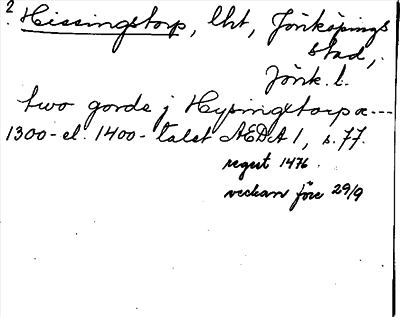 ? Hissingstorp, lht, Jönköpings
stad,
Jönk. l.
two gorde j Hysingxtorp ....
1300- el. 1400-talet ÄEDA 1, s. 77.
regest 1476.
veckan före 29/9